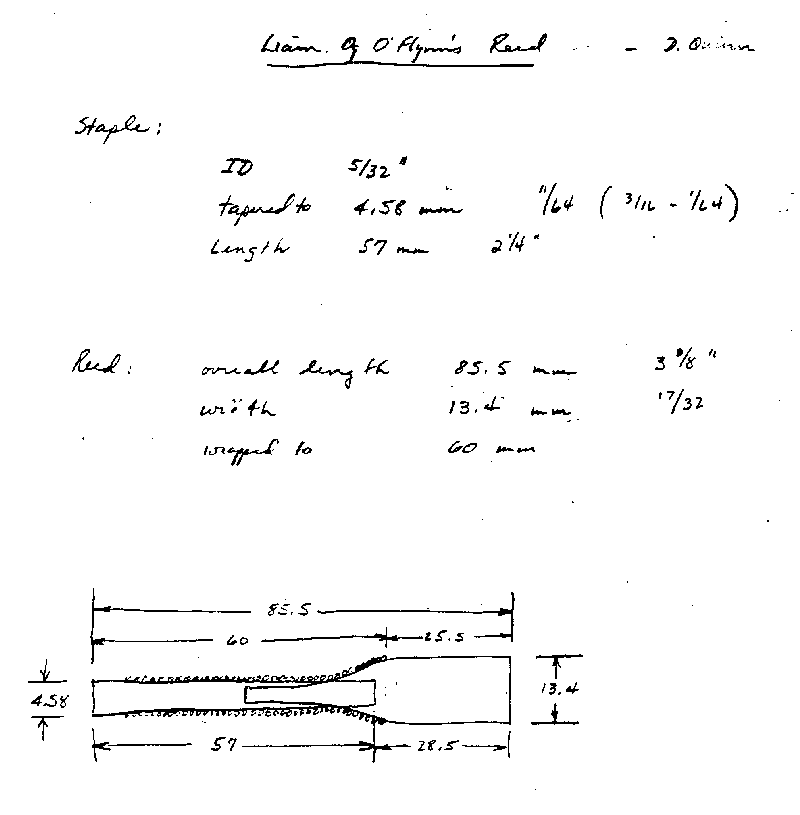 Liam Og O'Flynn's Reed - D. Quinn
Staple:
ID 5/32"
tapered to 4.58 mm 11/64 (3/16 - 1/64)
Length 57 mm 2 1/4"
Reed: overall length 85.5 mm 3 3/8"
width 13.4 mm 17/32
wrapped to 60 mm
85.5
60 25.5
4.58 13.4
57 28.5